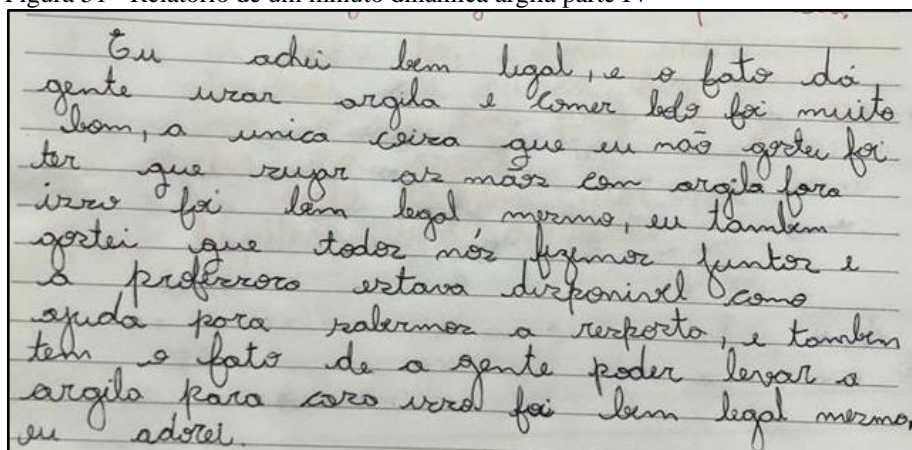 Figura 31 - Relatório de um minuto dinâmica argila parte IV
Eu achei bem legal, e o fato da
gente usar argila e comer bolo foi muito
bom, a unica coisa que eu não gostei foi
ter que sujar as mãos com argila fora
isso foi bem legal mesmo, eu também
gostei que todos nós fizemos juntos e
a professora estava disponivel como
ajuda para sabermos a resposta, e também
tem o fato de a gente poder levar a
argila para casa isso foi bem legal mesmo,
eu adorei.